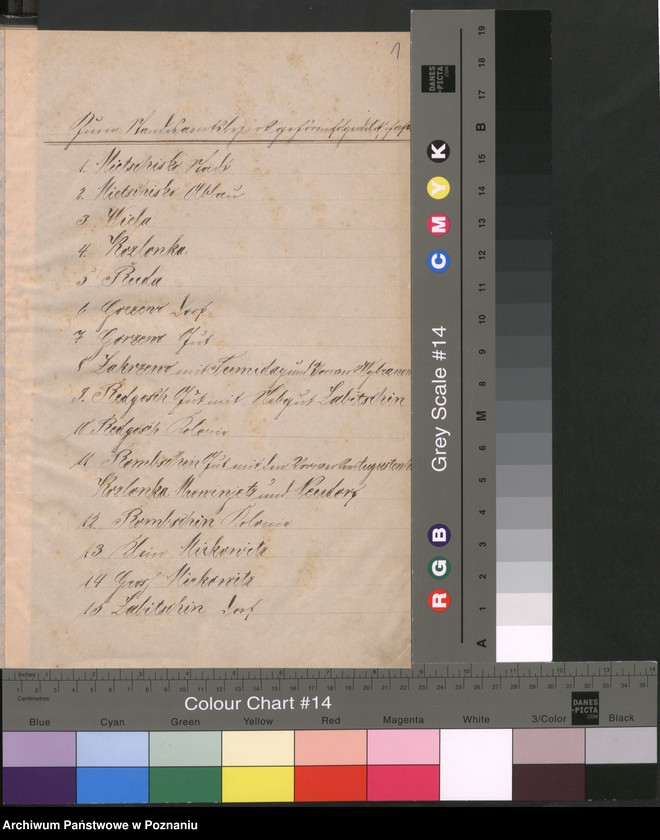 1
Zum Standesamtsbez
1. Mietschisko Stadt
2. Mietschisko Abbau
3 Wiela
4. Kozlonka
5 Ruda
6 Gorzewo Dorf
7 Gorzewo Gut
8 Zakrzewo mit und Vorwer
9. Redgosch Gut mit Labitschin
10 Redgosch Kolonie
11 Rombschin Gut mit den Vorwerken Augusten
Kozlonka und Neudorf
12. Rombschin Kolonie
13 Klein Mirkowitz
14 Gross Mirkowitz
15 Labitschin Dorf
DANES
-PICTA
.COM
Grey Scale #14
R G B C M Y K
A 1 2 3 4 5 6 M 8 9 10 11 12 13 14 15 B 17 18 19
Inches
Centimetres
Colour Chart #14
DANES
-PICTA
.COM
Blue Cyan Green Yellow Red Magenta White 3/Color Black
Archiwum Państwowe w Poznaniu